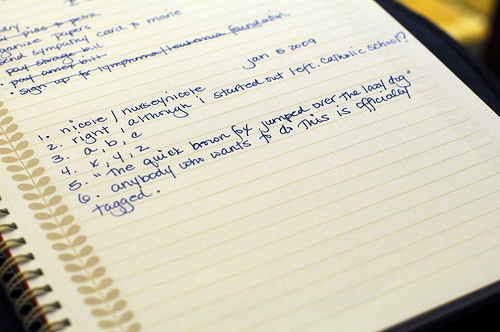 pies to petra
organize papers
send sympathy card to marie
pay storage bill
pay amex bill
sign up for lymphoma/leukemia foundation
jan 5 2009
1. nicole / nurseynicole
2. right, although i started out left. catholic school?
3. a, b, c
4. x, y, z
5. "the quick brown fox jumped over the lazy dog"
6. anybody who wants to do this is officially
tagged.